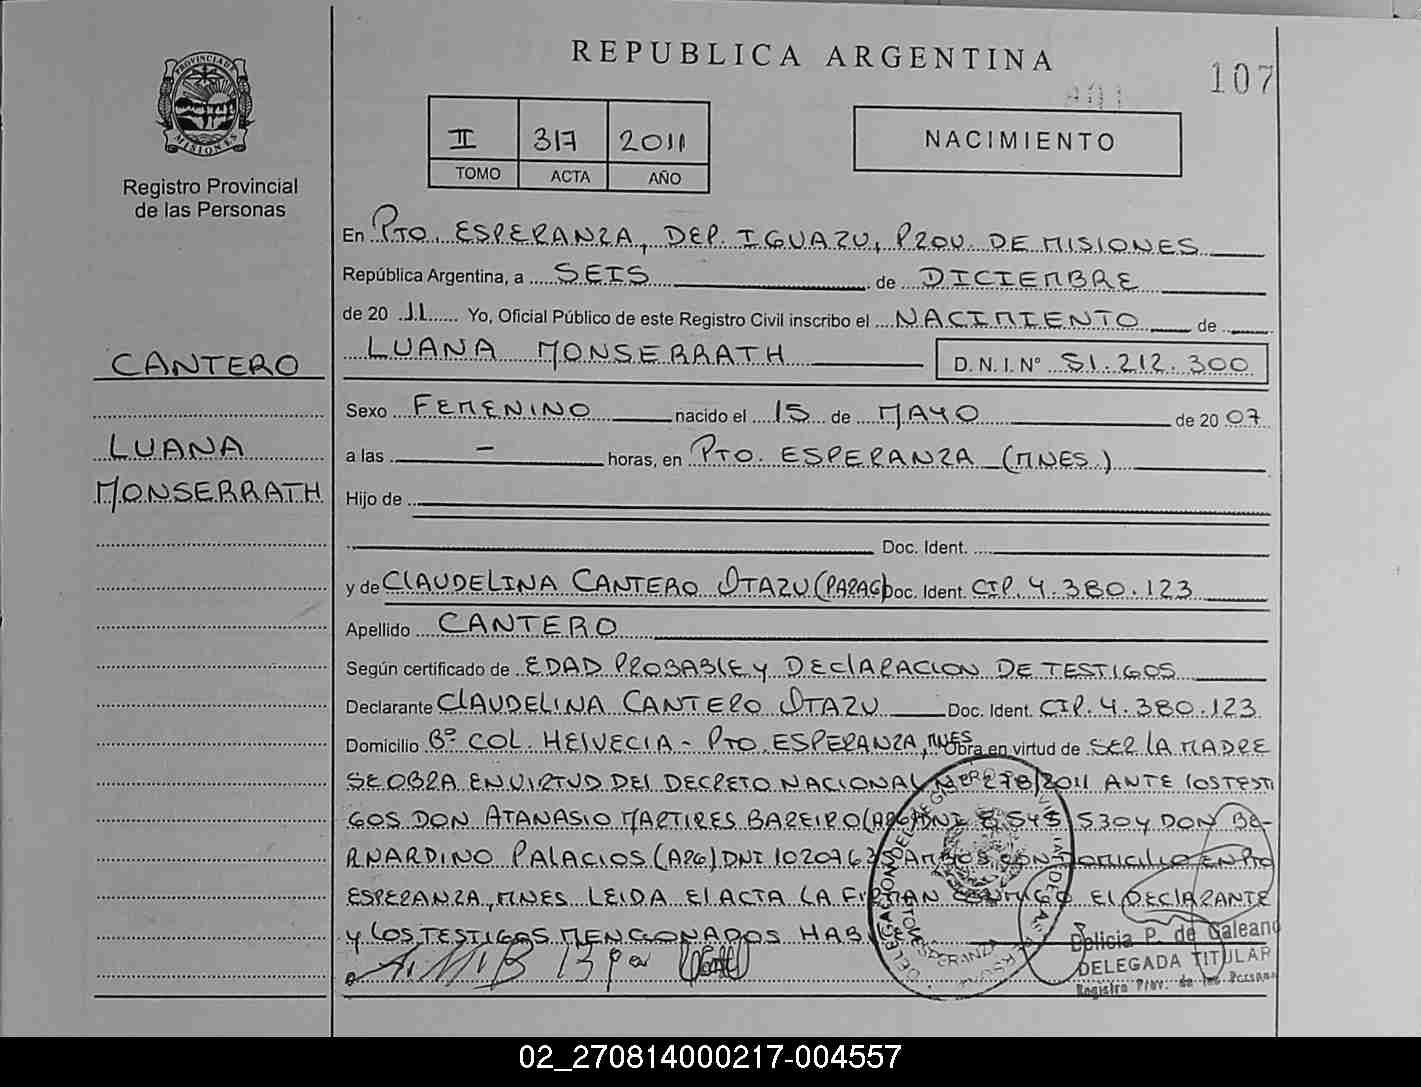 REPUBLICA ARGENTINA
107
PROVINCIA DE MISIONES
Registro Provincial
de las Personas
II 317 2011
TOMO ACTA AÑO
NACIMIENTO
CANTERO
LUANA
MONSERRATH
En PTO. ESPERANZA, DEP. IGUAZU, PROV. DE MISIONES
República Argentina, a SEIS de DICIEMBRE
de 20 11 Yo, Oficial Público de este Registro Civil inscribo el NACIMIENTO de
LUANA MONSERRATH D. N. I. Nº 51.212.300
Sexo FEMENINO nacido el 15 de MAYO de 20 07
a las - horas, en PTO. ESPERANZA (MNES.)
Hijo de
Doc. Ident.
y de CLAUDELINA CANTERO OTAZU (PARAG) Doc. Ident. CIP. 4.380.123
Apellido CANTERO
Según certificado de EDAD PROBABLE Y DECLARACION DE TESTIGOS
Declarante CLAUDELINA CANTERO OTAZU Doc. Ident. CIP. 4.380.123
Domicilio Bº COL. HELVECIA - PTO. ESPERANZA, MNES Obra en virtud de SER LA MADRE
SE OBRA EN VIRTUD DEL DECRETO NACIONAL Nº 278/2011 ANTE LOS TESTI
GOS DON ATANASIO MARTIRES BAREIRO (ARG) DNI 8.545.530 Y DON BE-
RNARDINO PALACIOS (ARG) DNI AMBOS CON DOMICILIO EN PTO
ESPERANZA, MNES. LEIDA EL ACTA LA FIRMAN CONMIGO EL DECLARANTE
Y LOS TESTIGOS MENCIONADOS
Delicia P. de Galeano
DELEGADA TITULAR
Registro Prov. de las Personas
02_270814000217-004557